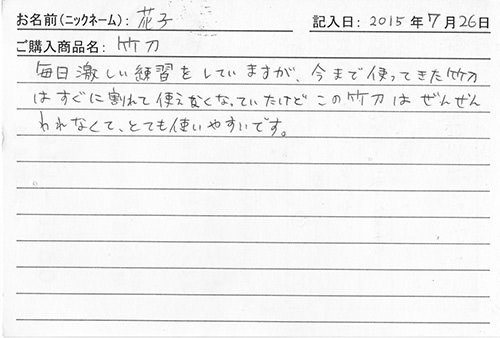 お名前(ニックネーム): 花子 記入日: 2015年7月26日
ご購入商品名: 竹刀
毎日激しい練習をしていますが、今まで使ってきた竹刀
はすぐに割れて使えなくなっていたけど この竹刀はぜんぜん
われなくて、とても使いやすいです。